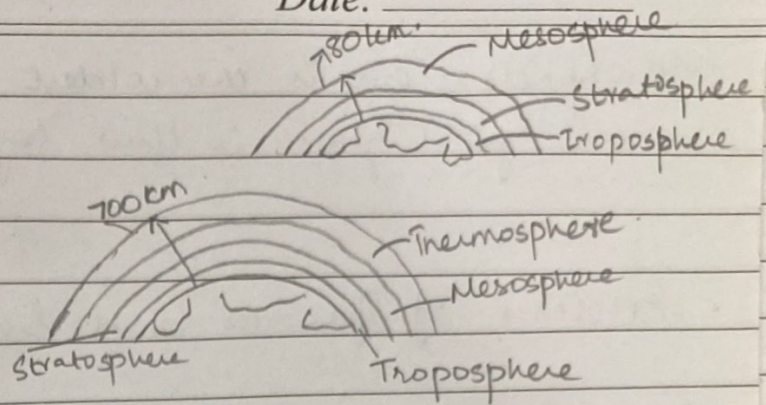 Date:
80km.
Mesosphere
Stratosphere
Troposphere
700km
Thermosphere
Mesosphere
Stratosphere
Troposphere